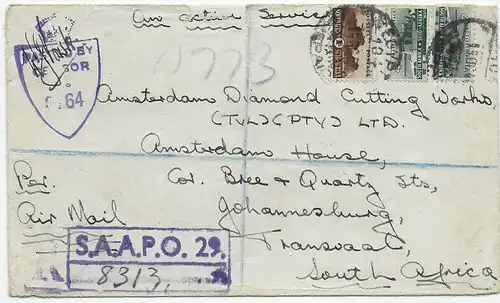 On Active Service
A773
PASSED BY
CENSOR
64
Amsterdam Diamond Cutting Works
(TVL) (PTY) LTD.
Amsterdam House,
Cor. Bree & Quartz Sts,
Johannesburg,
Transvaal,
South Africa
Per.
Air Mail
S.A.A.P.O. 29.
8313